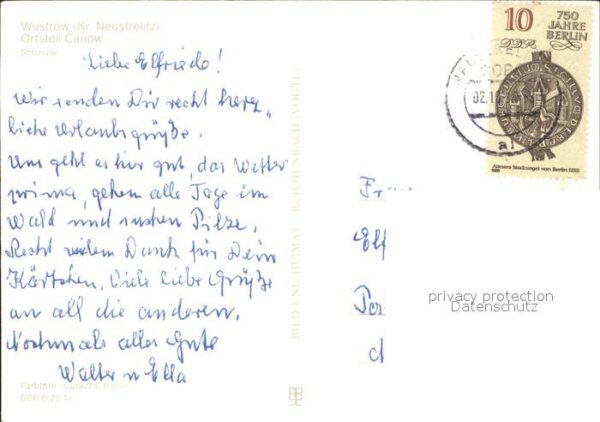 Wustrow (Kr. Neustrelitz)
Ortsteil Canow
Schleuse
Liebe Elfriede!
Wir senden Dir recht herz„
liche Urlaubsgrüße.
Uns geht es hier gut, das Wetter
prima, gehen alle Tage im
Wald und suchen Pilze.
Recht vielen Dank für Dein
Kärtchen. Viele liebe Grüße
an all die anderen.
Nochmals alles Gute
Walter u Ella
Farbfoto: Corazza, Berlin
DDR 0,20 M
BILD UND HEIMAT REICHENBACH (VOGTL)
10
750
JAHRE
BERLIN
DDR
02.10.
a
Ältestes Stadtsiegel von Berlin 1253
Elf
d
privacy protection
Datenschutz